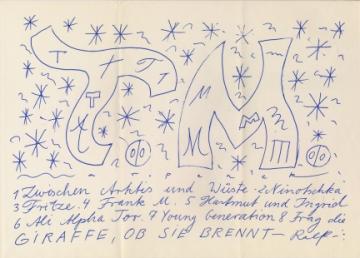 T T T T T M M M M m
1 Zwischen Arktis und Wüste 2 Ninotschka
3 Fritze. 4 Frank M. 5 Hartmut und Ingrid
6 Ali Alpha Tor. 7 Young Generation 8 Frag die
GIRAFFE, OB SIE BRENNT — Ralf